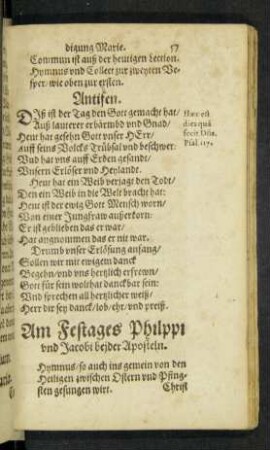 digung Marie. 57
Commun ist auß der heutigen Lection.
Hymnus vnd Collect zur zweyten Ve-
sper/ wie oben zur ersten.
Antifen.
DIß ist der Tag den Gott gemacht hat/
Auß lauterer erbärmbd vnd Gnad/
Heut hat gesehn Gott vnser HErr/
Auff seins Volcks Trübsal vnd beschwer:
Vnd hat vns auff Erden gesandt/
Vnsern Erlöser vnd Heylandt.
Heut hat ein Weib verjagt den Todt/
Den ein Weib in die Welt bracht hat:
Heut ist der ewig Gott Mensch worn/
Von einer Jungfraw außerkorn:
Er ist geblieben das er war/
Hat angnommen das er nit war.
Drumb vnser Erlösung anfang/
Sollen wir mit ewigem danck
Begehn/ vnd vns hertzlich erfrown/
Gott für sein wolthat danckbar sein:
Vnd sprechen all hertzlicher weiß/
Herr dir sey danck/ lob/ ehr/ vnd preiß.
Hæc est
dies quã
fecit Dñs.
Psal. 117.
Am Festages Philippi
vnd Jacobi beider Aposteln.
Hymnus/ so auch ins gemein von den
Heiligen zwischen Ostern vnd Pfing-
sten gesungen wirt.
Christ